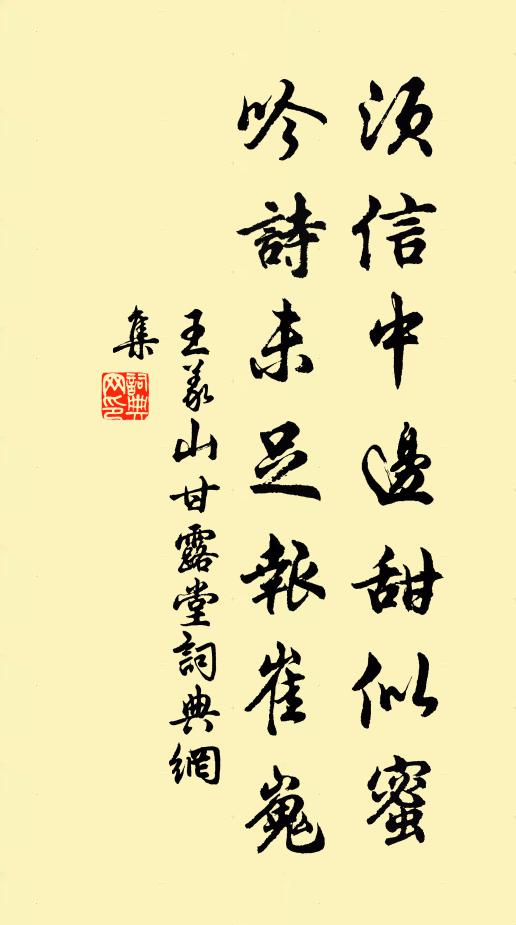 須信中邊甜似蜜
吟詩未足報崔嵬
王義山甘露堂詞典網
集
詞典
网印